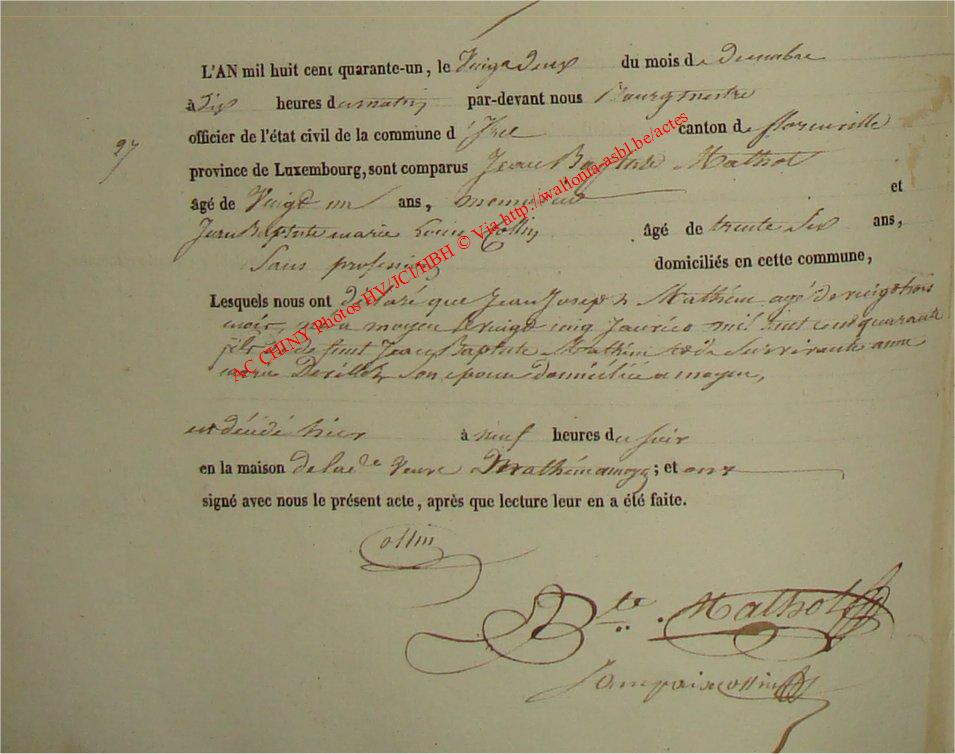 L'AN mil huit cent quarante-un, le Vingt deux du mois de decembre
à dix heures du matin par-devant nous Bourgmestre
officier de l'état civil de la commune d'Izel canton de florenville
27
province de Luxembourg, sont comparus Jean Baptiste Mathot
âgé de Vingt un ans, menuisier et
Jean Baptiste marie Louis Collin âgé de trente Six ans,
Sans profession domiciliés en cette commune,
Lesquels nous ont déclaré que Jean Joseph Mathieu agé de vingt trois
mois, né a moyen le vingt cinq Janvier mil huit cent quarante
fils de feut Jean Baptiste Mathieu et de Survivante anne
marie son epouse domiciliée a moyen,
est décédé hier à neuf heures du soir
en la maison de la de Veuve Mathieu a moyen; et ont
signé avec nous le présent acte, après que lecture leur en a été faite.
Collin
J Bte. Mathot
Collin
AC CHINY Photos HV/JCI/HBH © Via http://wallonia-asbl.be/actes